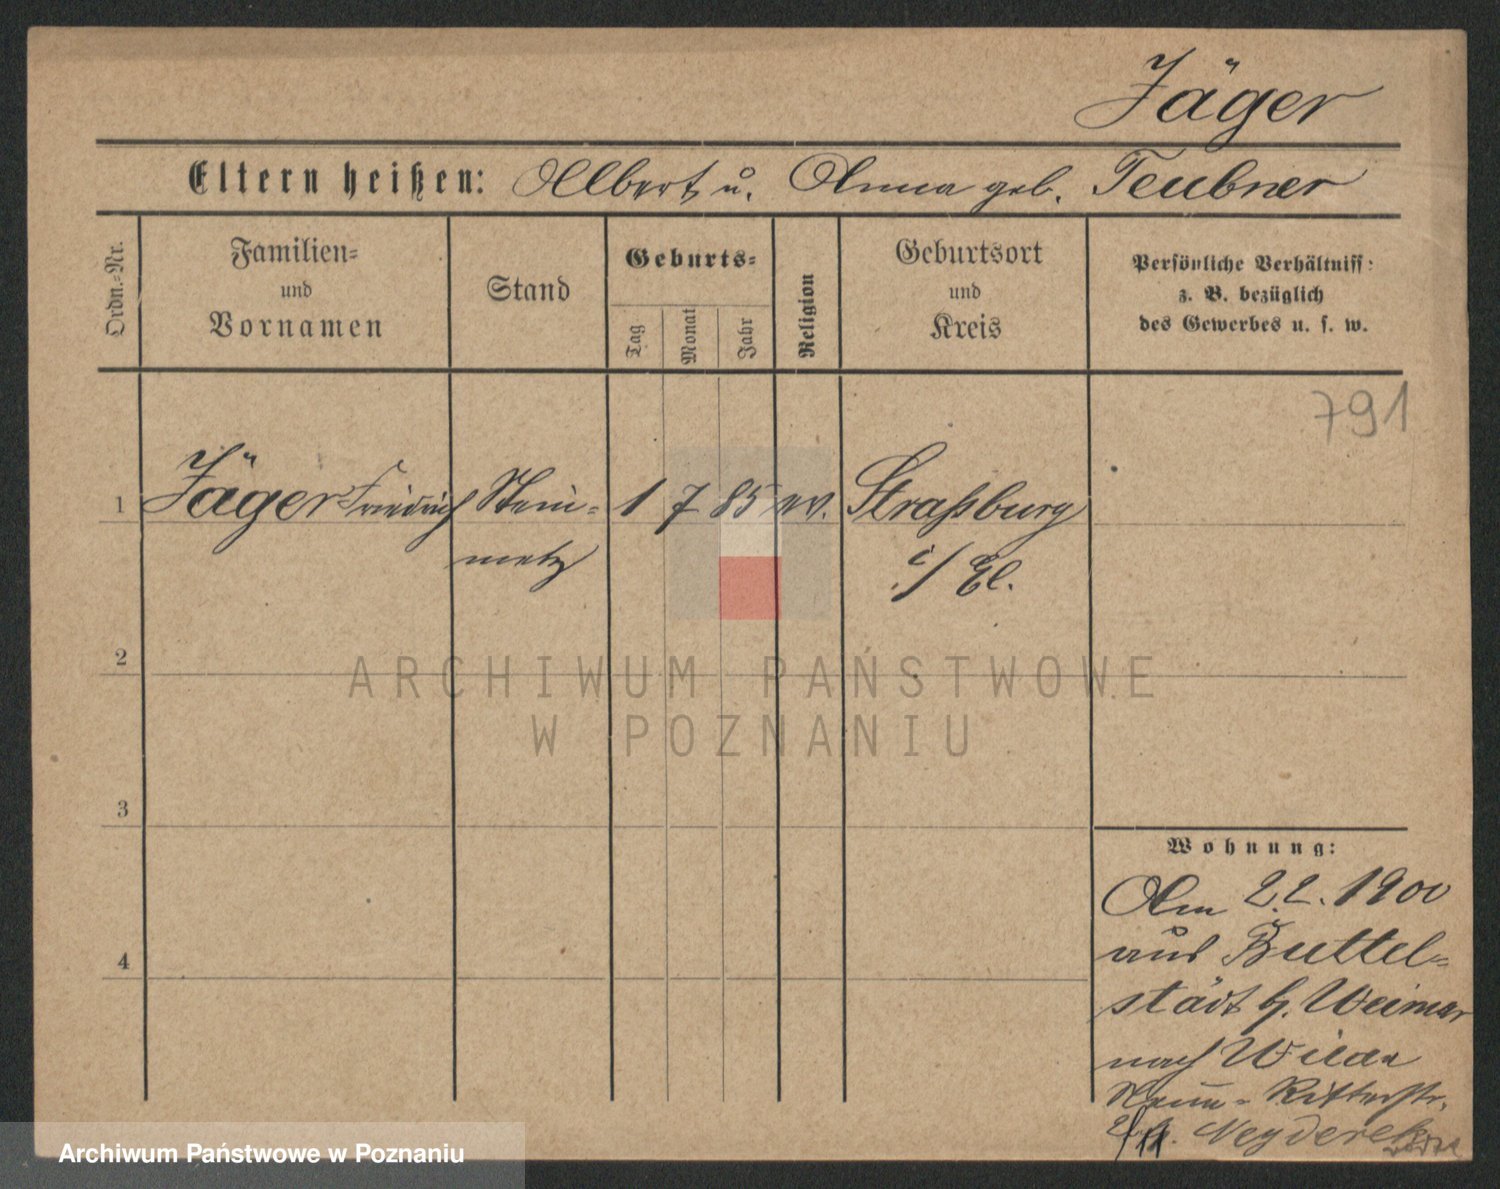 Jäger
Eltern heißen: Albert u. Anna geb. Teubner
Ordn.-Nr.
Familien-
und
Vornamen
Stand
Geburts-
Tag
Monat
Jahr
Religion
Geburtsort
und
Kreis
Persönliche Verhältniss:
z. B. bezüglich
des Gewerbes u. s. w.
791
1 Jäger Friedrich Stein- 1 7 85 ev. Straßburg
metz i/ El.
2
ARCHIWUM PAŃSTWOWE
W POZNANIU
3
Wohnung:
Am 2.2. 1900
aus Buttel-
4
städt b. Weimar
nach Wilda
Ritterstr.
Archiwum Państwowe w Poznaniu